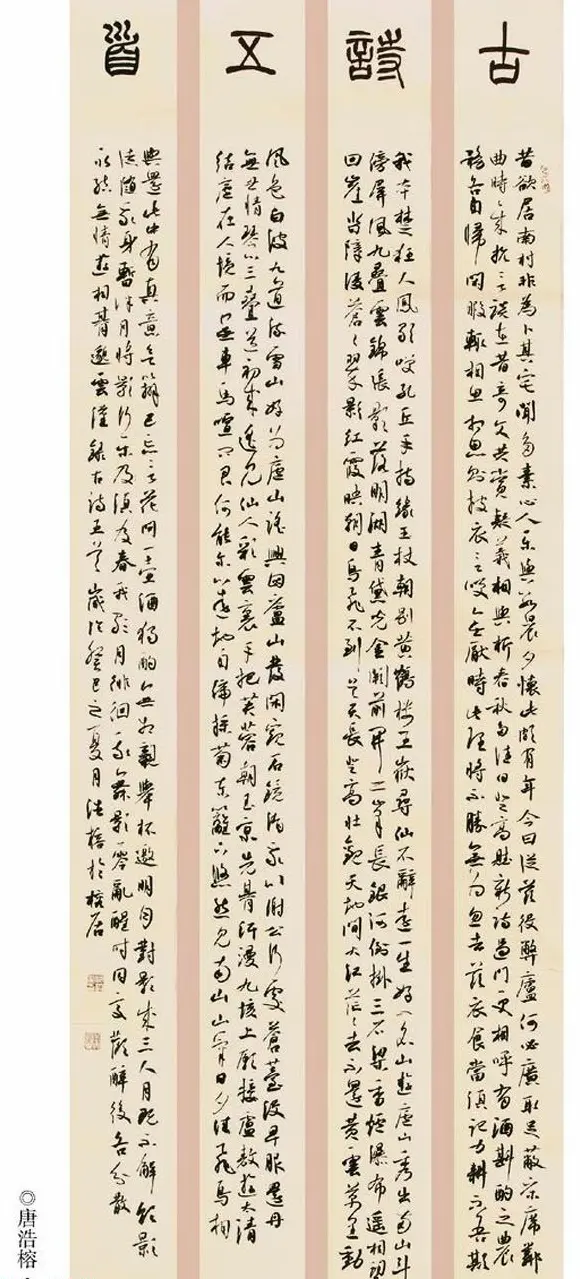 古詩五首
昔欲居南村非為卜其宅聞多素心人樂與數晨夕懷此頗有年今日從茲役弊廬何必廣取足蔽床席鄰
曲時時來抗言談在昔奇文共賞疑義相與析春秋多佳日登高賦新詩過門更相呼有酒斟酌之農
務各自歸閑暇輒相思相思則披衣言笑無厭時此理將不勝無為忽去茲衣食當須記力耕不吾欺
我本楚狂人鳳歌笑孔丘手持綠玉杖朝別黃鶴樓五嶽尋仙不辭遠一生好入名山遊廬山秀出南山斗
傍屏風九疊雲錦張影落明湖青黛光金闕前開二峯長銀河倒掛三石梁香爐瀑布遙相望
回崖沓障凌蒼蒼翠影紅霞映朝日鳥飛不到吳天長登高壯觀天地間大江茫茫去不還黃雲萬里動
風色白波九道流雪山好為廬山謠興因廬山發閑窺石鏡清我心謝公行處蒼苔沒早服還丹
無世情琴心三疊道初成遙見仙人彩雲裏手把芙蓉朝玉京先期汗漫九垓上願接盧敖遊太清
結廬在人境而無車馬喧問君何能爾心遠地自偏採菊東籬下悠然見南山山氣日夕佳飛鳥相
與還此中有真意欲辯已忘言花間一壺酒獨酌無相親舉杯邀明月對影成三人月既不解飲影
徒隨我身暫伴月將影行樂及須及春我歌月徘徊我舞影零亂醒時同交歡醉後各分散
永結無情遊相期邈雲漢錄古詩五首歲次癸巳之夏月浩榕於榕居
◎唐浩榕